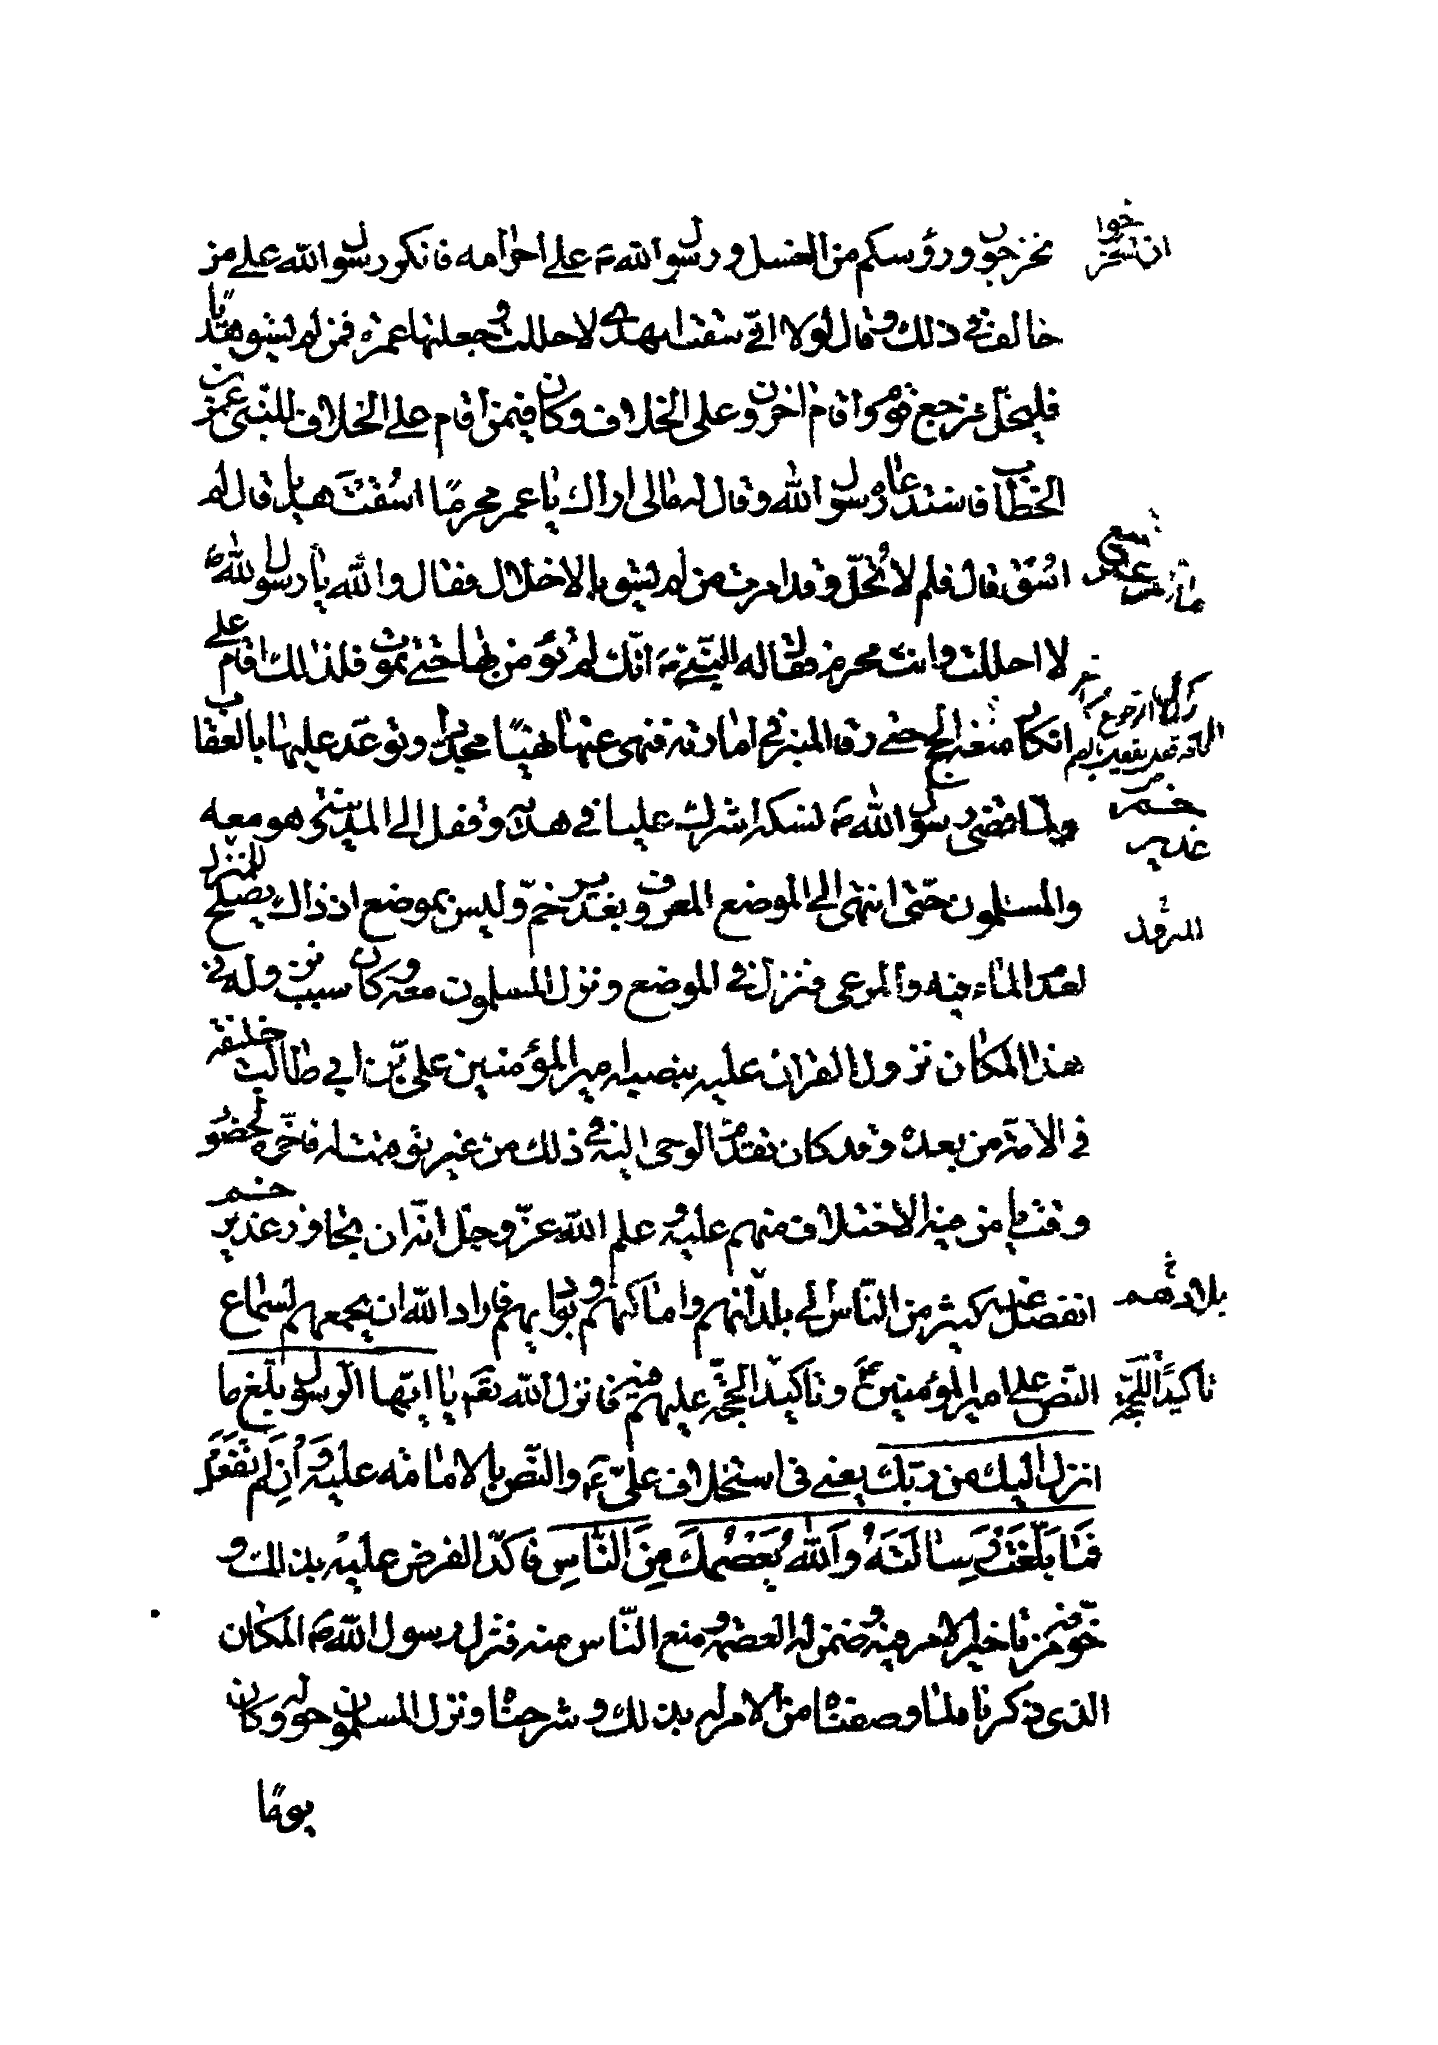 تخرجون ورؤسكم من الغسل ورسول الله ص على احرامه فانكر رسول الله على من
خالف في ذلك وقال لولا اني سقت الهدي لاحللت وجعلتها عمرة فمن لم يسق هديًا
فليحل فرجع قوم واقام اخرون على الخلاف وكان فيمن اقام على الخلاف للنبي عمر بن
الخطاب فاستدعاه رسول الله وقال له مالي اراك يا عمر محرمًا اسقت هديا قال لم
اسق قال فلم لا تحل وقد امرت من لم يسق بالاحلال فقال والله يا رسول الله
لا احللت وانت محرم فقال له النبي ص انك لم تؤمن بها حتى تموت فلذلك اقام على
انكار متعة الحج حتى رقا المنبر في امارته فنهى عنها نهيًا مجددا وتوعد عليها بالعقاب
ولما قضى رسول الله ص نسكه اشرك عليا في هديه وقفل الى المدينة وهو معه
والمسلمون حتى انتهى الى الموضع المعروف بغدير خم وليس بموضع اذ ذاك يصلح للمنزل
لعدم الماء فيه والمرعى فنزل في الموضع ونزل المسلمون معه وكان سبب نزوله في
هذا المكان نزول القران عليه بنصبه امير المؤمنين علي بن ابي طالب خليفة
في الامة من بعده وقد كان تقدم الوحي اليه في ذلك من غير توقيت له فاخره لحضور
وقت يامن فيه الاختلاف منهم عليه وعلم الله عز وجل انه ان تجاوز غدير خم
انفصل عنه كثير من الناس الى بلدانهم واماكنهم وبواديهم فاراد الله ان يجمعهم لسماع
النص على امير المؤمنين ع وتاكيد الحجة عليهم فيه فانزل الله تعم يا ايها الرسول بلغ ما
انزل اليك من ربك يعني في استخلاف علي ع والنص بالامامة عليه وَاِن لَم تَفعَل
فَمَا بَلَّغتَ رِسَالَتَهُ وَاللهُ يَعصِمُكَ مِنَ النَّاسِ فاكد الفرض عليه بذلك و
خوفه من تاخير الامر فيه وضمن له العصمة ومنع الناس منه فنزل رسول الله ص المكان
الذي ذكرنا لما وصفناه من الامر له بذلك وشرحناه ونزل المسلمون حوله وكان
يومًا
خم
غدير
بلادهم
تاكيدًا للحجة